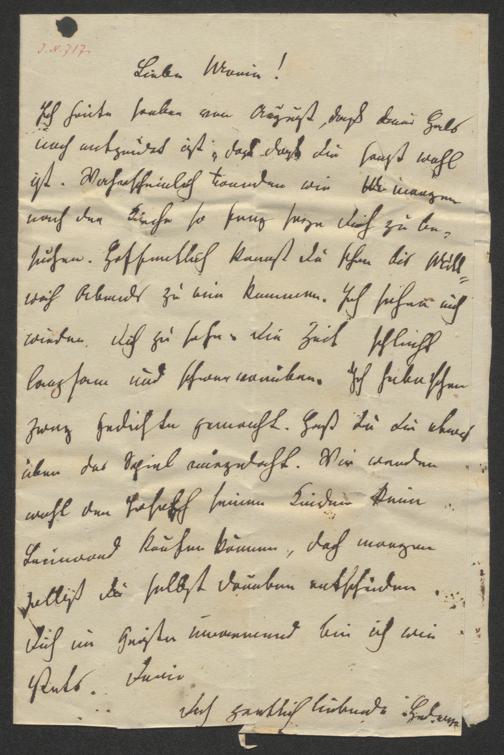 J.N. 717.
Lieber Marie!
Ich hörte soeben von August, daß dein Hals
noch entzündet ist, daß du sonst wohl
ist. Wahrscheinlich werden wir morgen
nach der Kirche so frey seyn dich zu be-
suchen. Hoffentlich kannst du schon bis Mitt-
woch Abends zu mir kommen. Ich sehne mich
wieder dich zu sehn. Die Zeit schleicht
langsam und schwer vorüber. Ich habe schon
zwey Gedichte gemacht. Hast du dir etwas
über das Spiel ausgedacht. Wir werden
wohl den Joseph seinen Kindern kein
Leinwand kaufen können, doch morgen
sollst du selbst darüber entscheiden.
Dich im Geiste umarmend bin ich wie
stets. Deine
dich zärtlich liebende